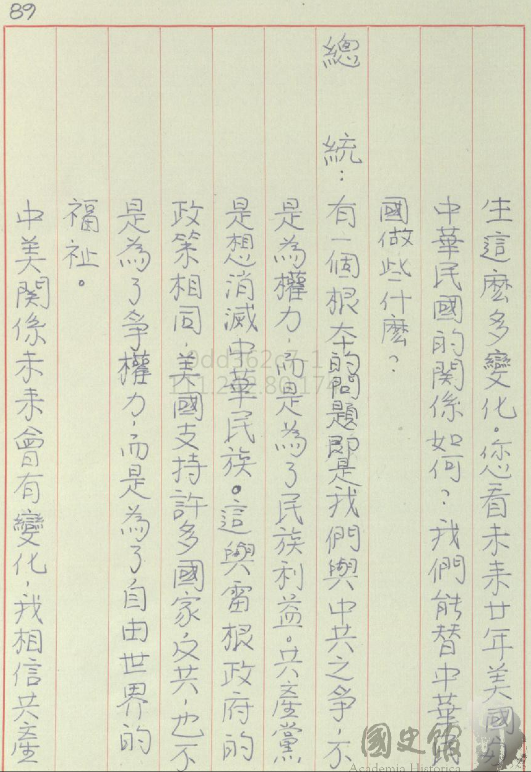 89
生這麽多變化。您看未來廿年美國與
中華民國的關係如何？我們能替中華民
國做些什麽？
總　統：有一個根本的問題即是我們與中共之爭，不
是為權力，而是為了民族利益。共產黨
是想消滅中華民族。這與雷根政府的
政策相同，美國支持許多國家反共，也不
是為了爭權力，而是為了自由世界的
福祉。
中美關係未來會有變化，我相信共產
國史館
Academia Historica